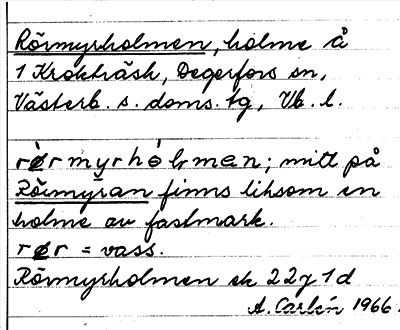 Rörmyrholmen, holme å
1 Krokträsk, Degerfors sn,
Västerb. s. doms. tg, Vb. l.
rø̀rmyrhólmen; mitt på
Rörmyran finns liksom en
holme av fastmark.
rør = vass.
Rörmyrholmen ek 22J 1d
A. Carlén 1966.